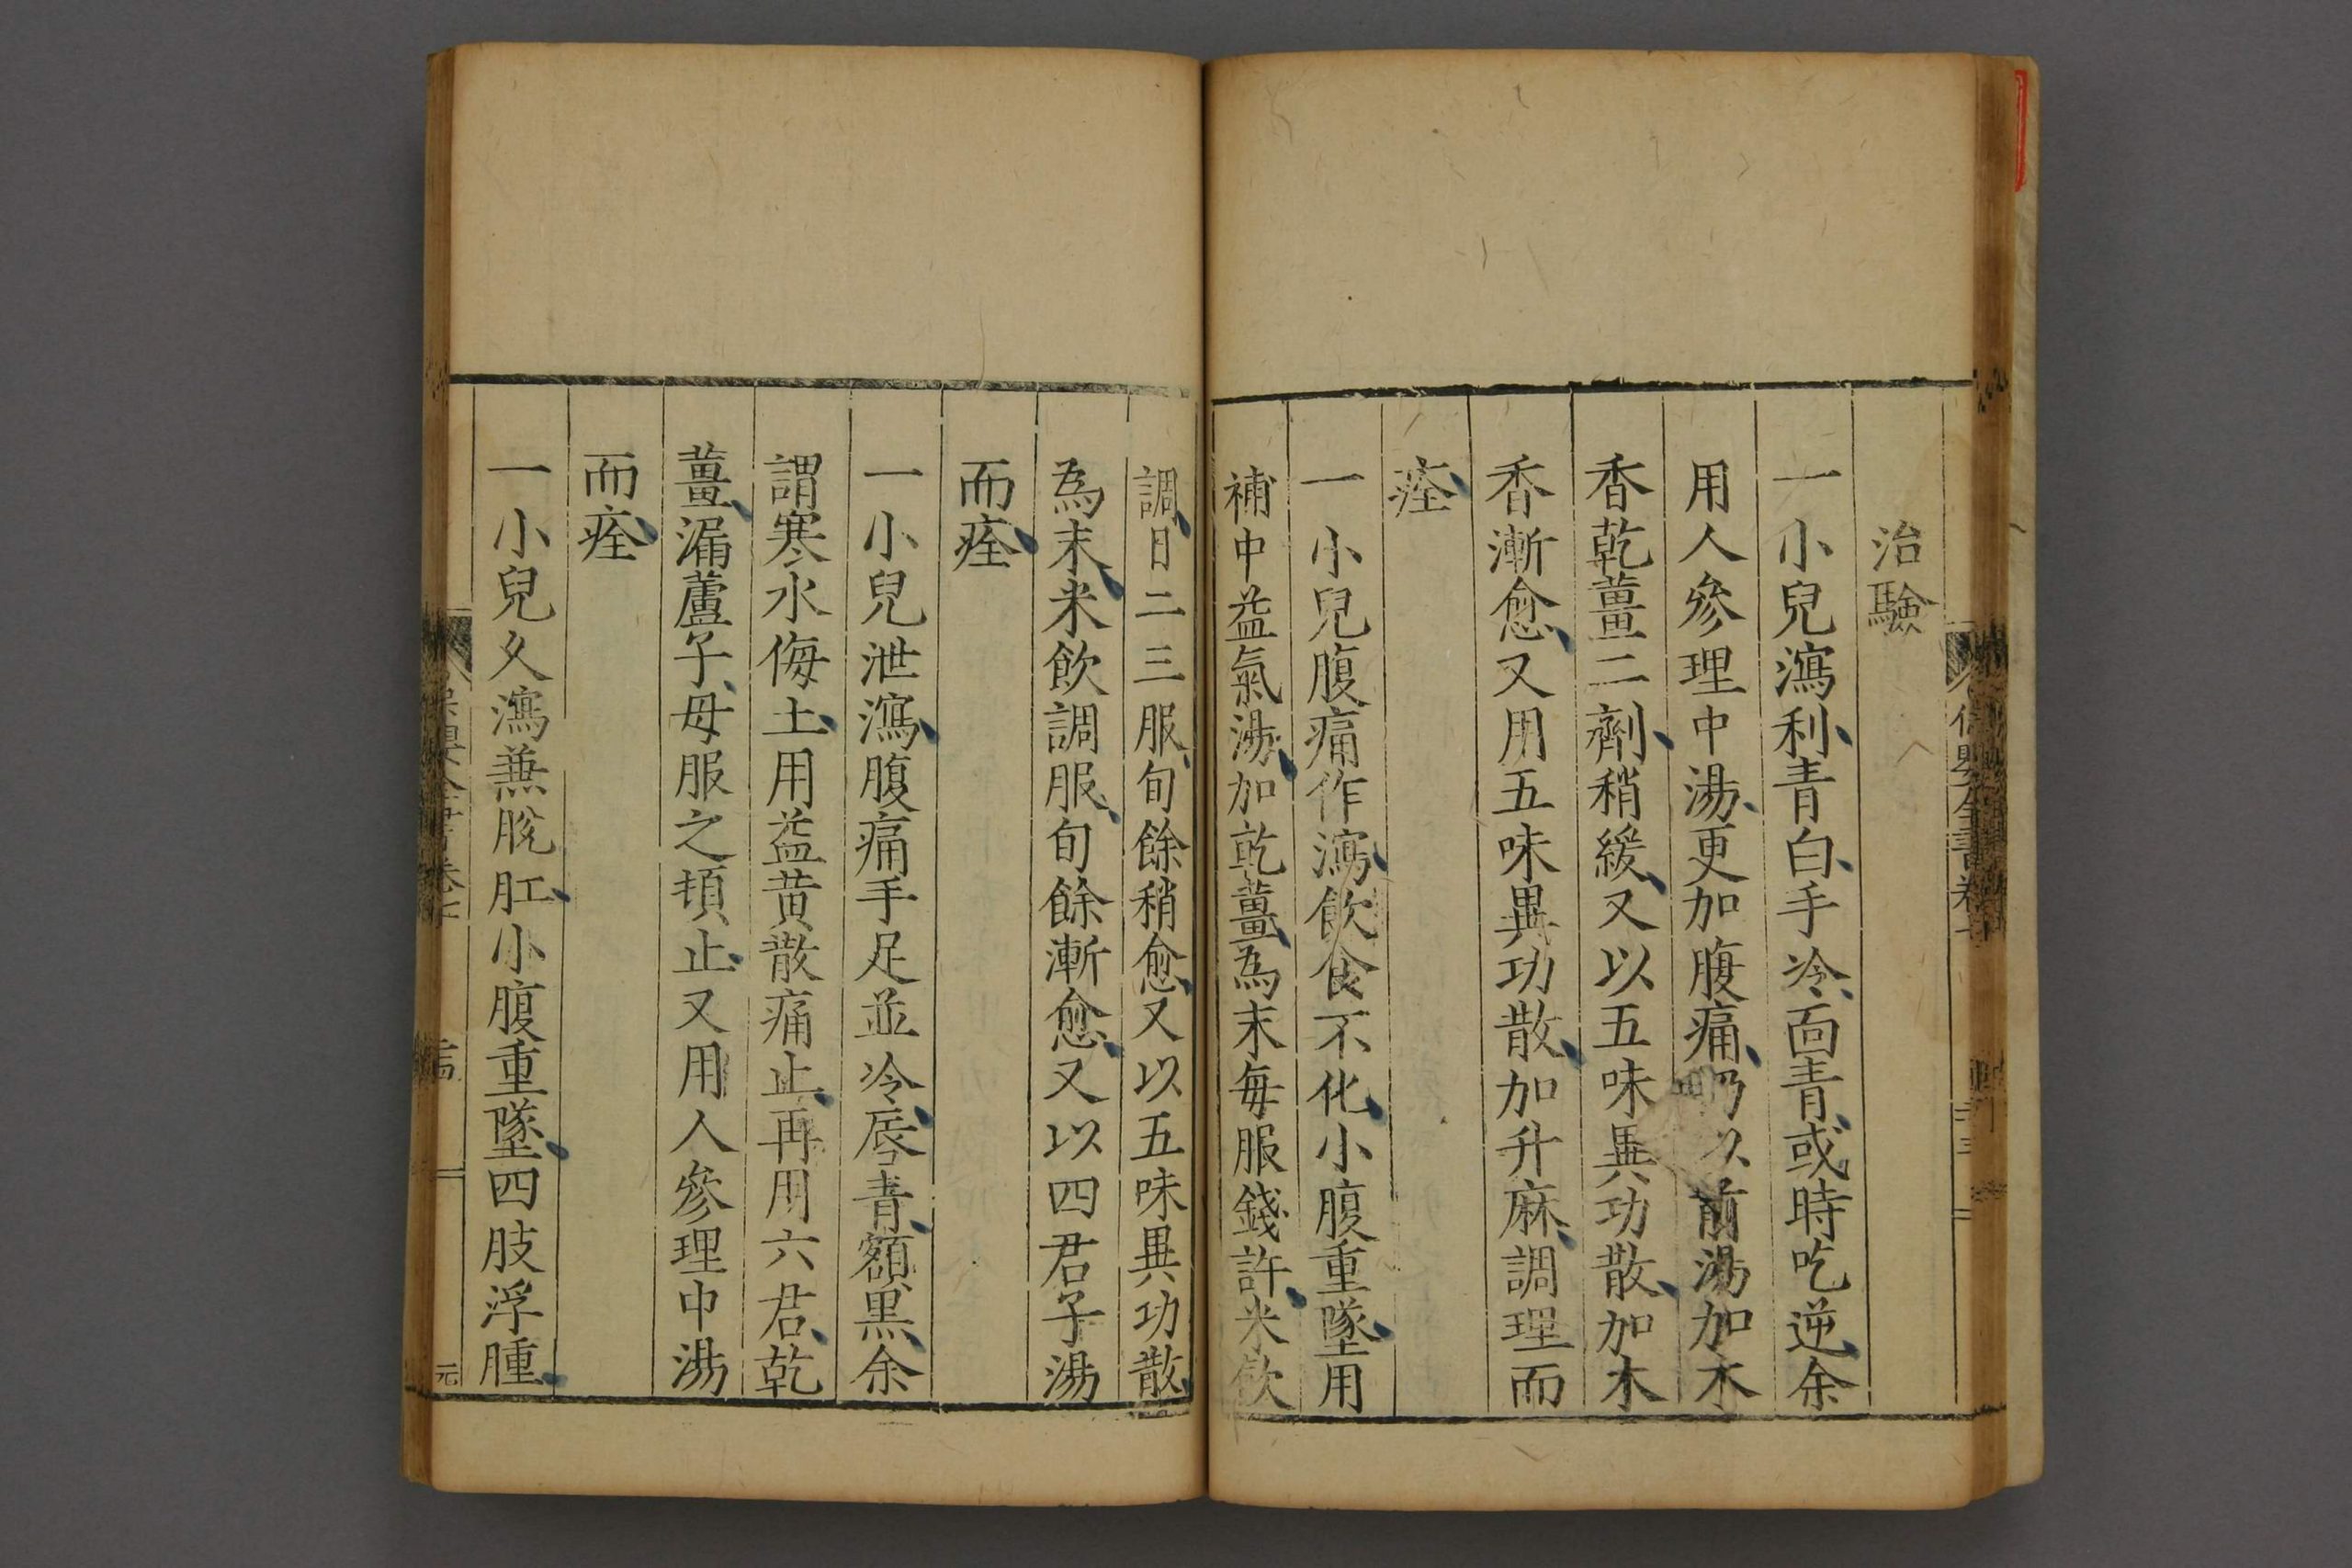 治驗
一小兒瀉利青白手冷面青或時吃逆余
用人參理中湯更加腹痛仍以前湯加木
香乾薑二劑稍緩又以五味異功散加木
香漸愈又用五味異功散加升麻調理而
痊
一小兒腹痛作瀉飲食不化小腹重墜用
補中益氣湯加乾薑為末每服錢許米飲
調日二三服旬餘稍愈又以五味異功散
為末米飲調服旬餘漸愈又以四君子湯
而痊
一小兒泄瀉腹痛手足並冷唇青額黑余
謂寒水侮土用益黃散痛止再用六君乾
薑漏蘆子母服之頓止又用人參理中湯
而痊
一小兒久瀉兼脫肛小腹重墜四肢浮腫